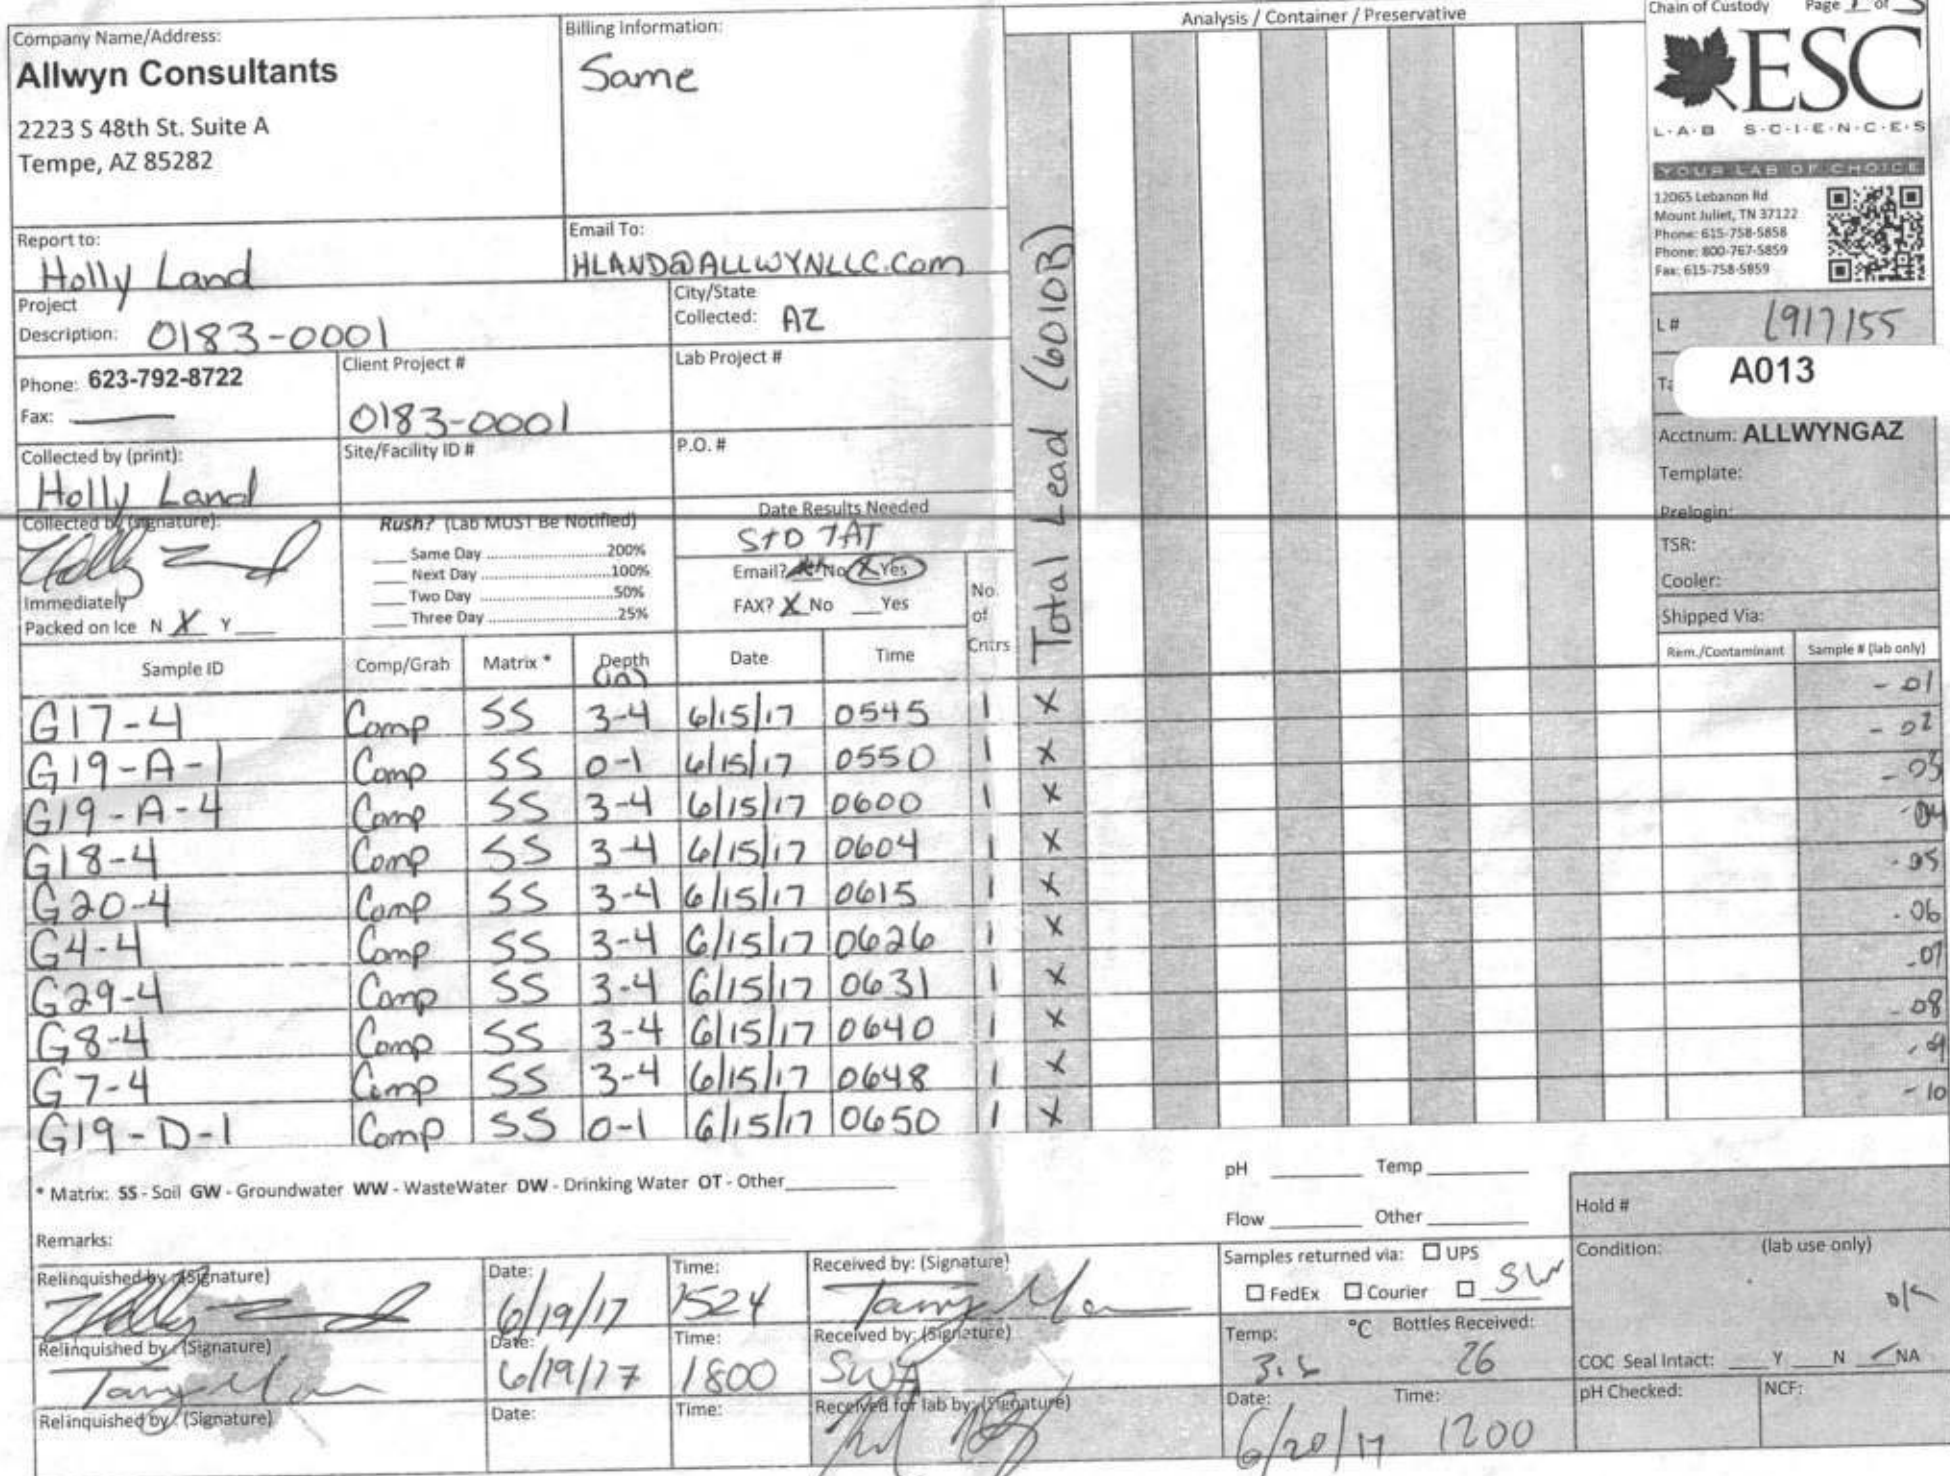 Analysis / Container / Preservative
Chain of Custody Page 1 of 3
Company Name/Address:
Allwyn Consultants
2223 S 48th St. Suite A
Tempe, AZ 85282
Billing Information:
Same
ESC
L·A·B S·C·I·E·N·C·E·S
YOUR LAB OF CHOICE
12065 Lebanon Rd
Mount Juliet, TN 37122
Phone: 615-758-5858
Phone: 800-767-5859
Fax: 615-758-5859
Report to:
Holly Land
Email To:
HLAND@ALLWYNLLC.com
Project
Description: 0183-0001
City/State
Collected: AZ
L # L917155
A013
Phone: 623-792-8722
Fax:
Client Project #
0183-0001
Lab Project #
Collected by (print):
Holly Land
Site/Facility ID #
P.O. #
Acctnum: ALLWYNGAZ
Template:
Prelogin:
TSR:
Cooler:
Shipped Via:
Collected by (signature):
Immediately
Packed on Ice N X Y
Rush? (Lab MUST Be Notified)
Same Day 200%
Next Day 100%
Two Day 50%
Three Day 25%
Date Results Needed
STD TAT
Email? No X Yes
FAX? X No Yes
No.
of
Cntrs
Total Lead (6010B)
Sample ID Comp/Grab Matrix * Depth (in) Date Time Rem./Contaminant Sample # (lab only)
G17-4 Comp SS 3-4 6/15/17 0545 1 X -01
G19-A-1 Comp SS 0-1 6/15/17 0550 1 X -02
G19-A-4 Comp SS 3-4 6/15/17 0600 1 X -03
G18-4 Comp SS 3-4 6/15/17 0604 1 X -04
G20-4 Comp SS 3-4 6/15/17 0615 1 X -05
G4-4 Comp SS 3-4 6/15/17 0626 1 X -06
G29-4 Comp SS 3-4 6/15/17 0631 1 X -07
G8-4 Comp SS 3-4 6/15/17 0640 1 X -08
G7-4 Comp SS 3-4 6/15/17 0648 1 X -09
G19-D-1 Comp SS 0-1 6/15/17 0650 1 X -10
* Matrix: SS - Soil GW - Groundwater WW - WasteWater DW - Drinking Water OT - Other
pH Temp
Flow Other
Remarks:
Hold #
Relinquished by: (Signature)
Date: 6/19/17
Time: 1524
Received by: (Signature)
Samples returned via: UPS
FedEx Courier SW
Condition: (lab use only)
ok
Relinquished by: (Signature)
Date: 6/19/17
Time: 1800
Received by: (Signature)
SWA
Temp: °C Bottles Received:
26
COC Seal Intact: Y N NA
Relinquished by: (Signature)
Date:
Time:
Received for lab by: (Signature)
Date: 6/20/17
Time: 1200
pH Checked:
NCF: